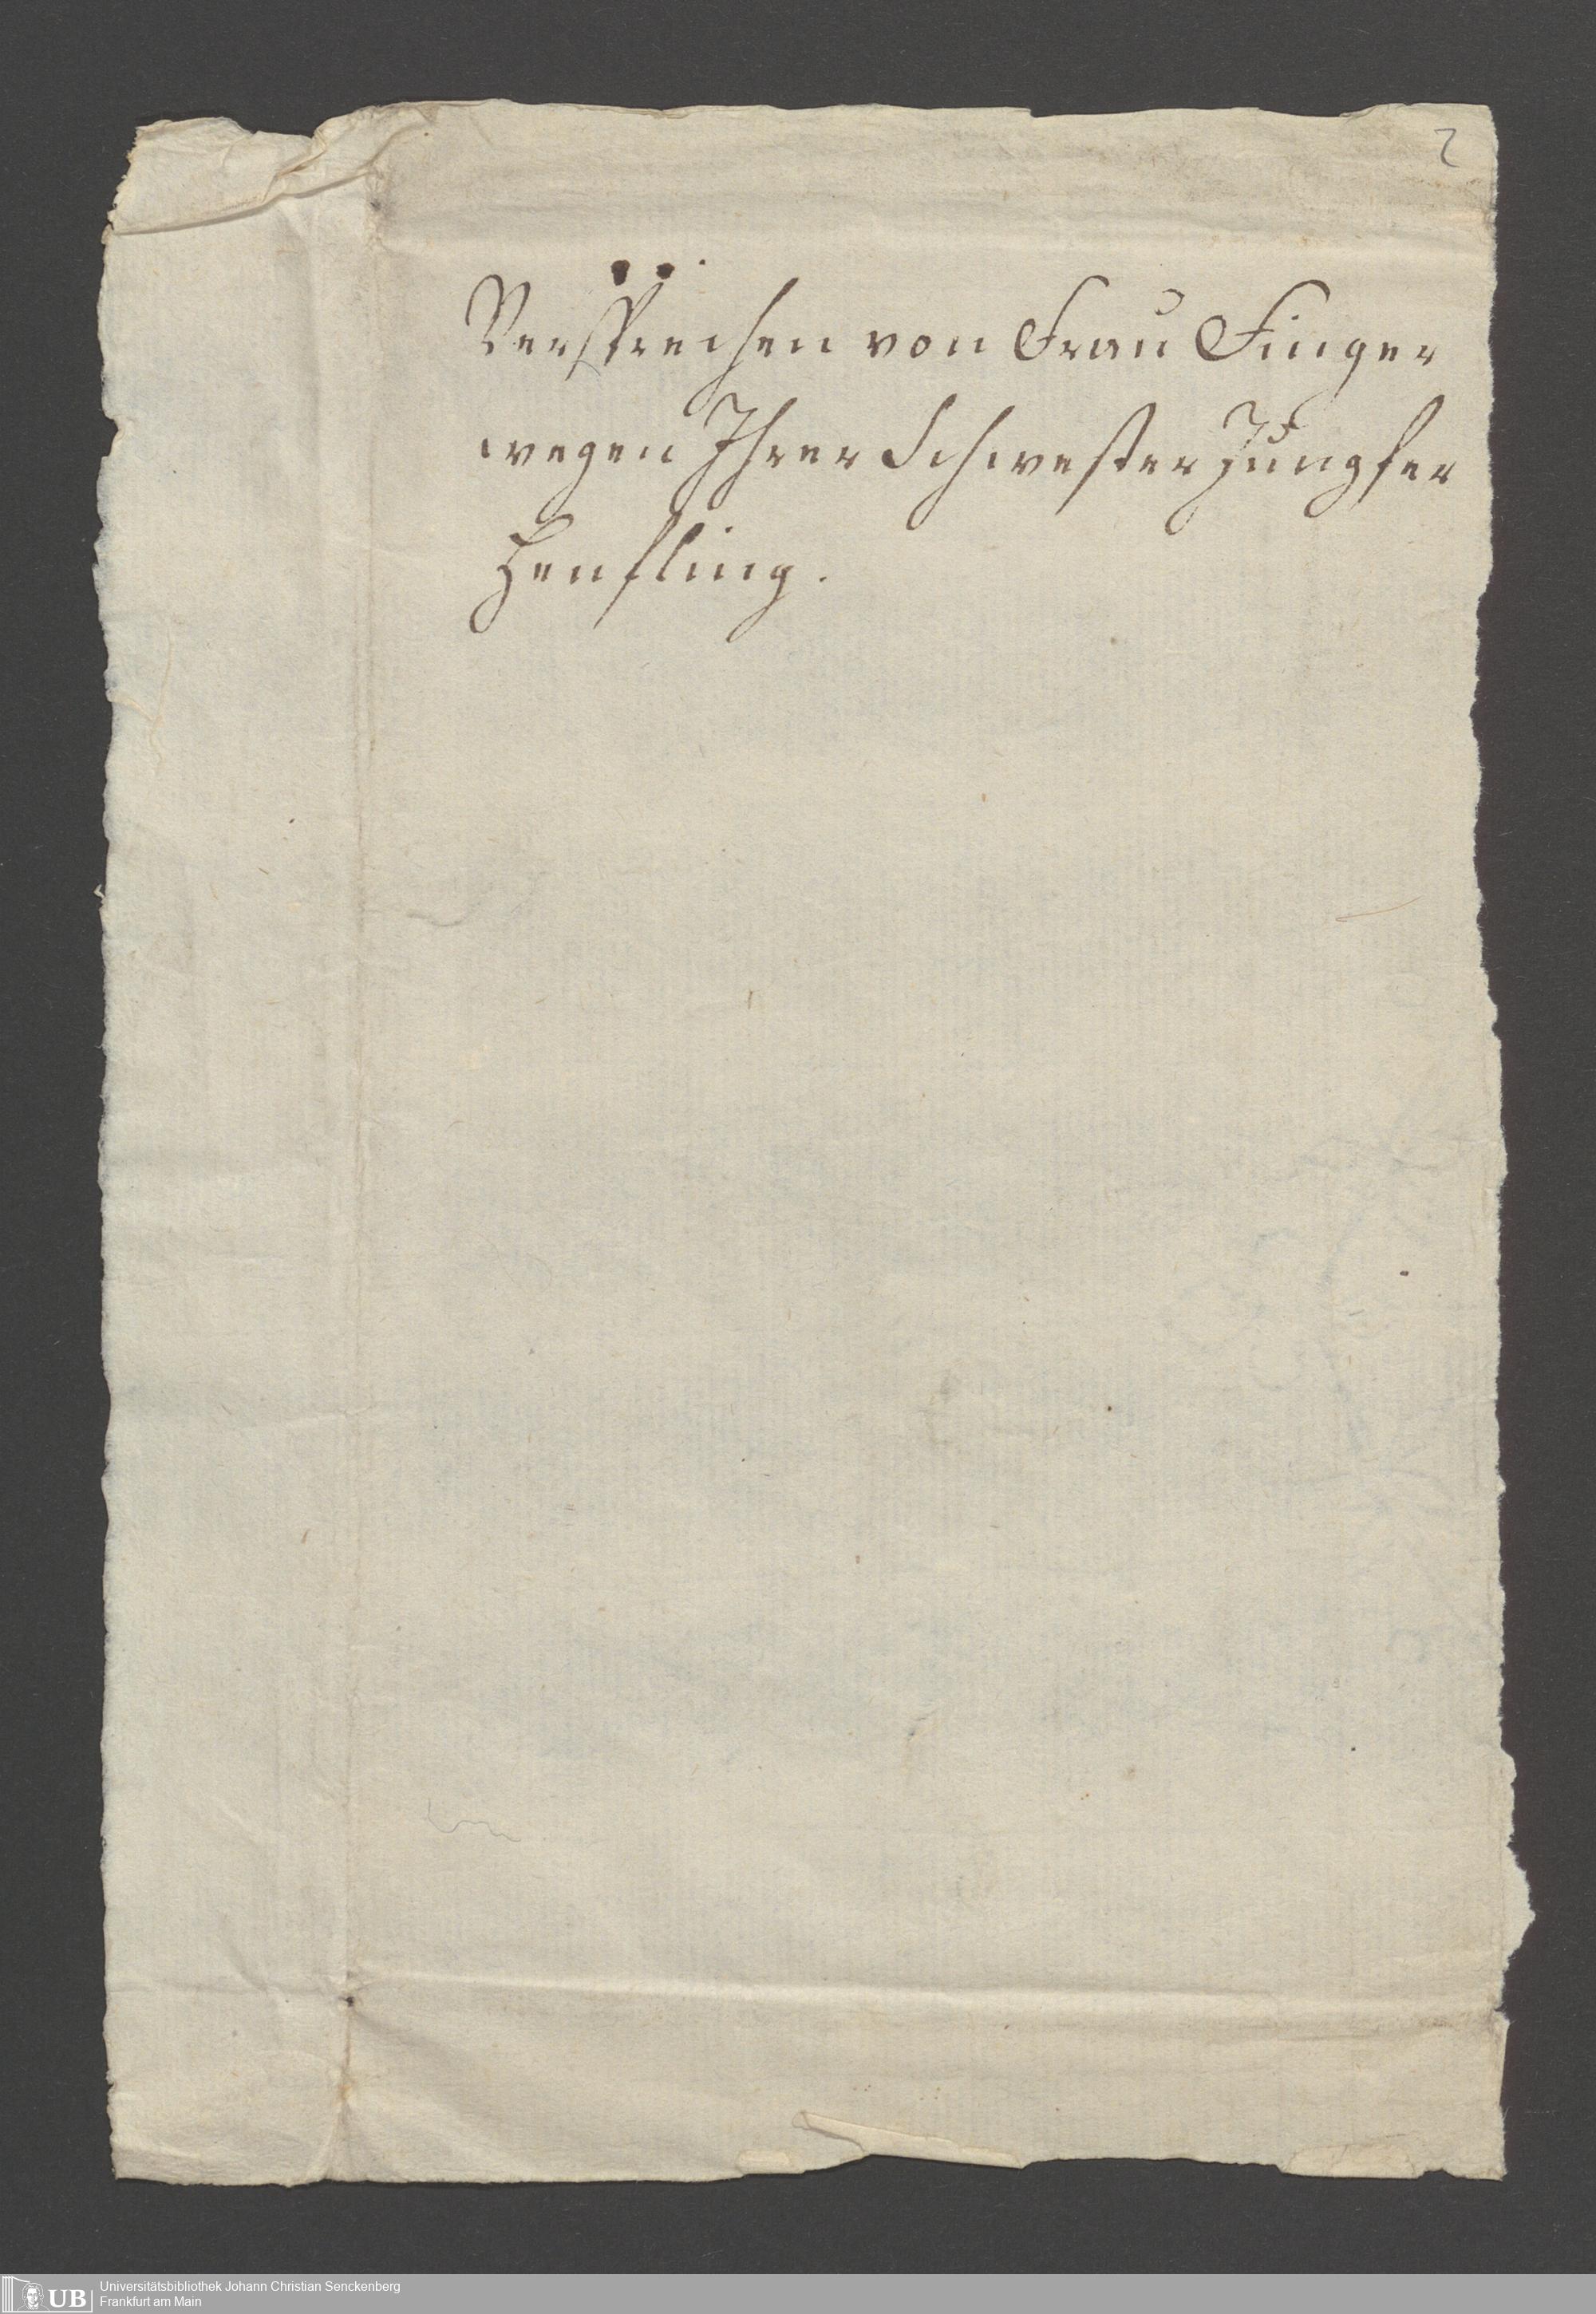 2
Versprechen von Frau Finger
wegen Ihrer Schwester Jungfer
Henfling.
UB
Universitätsbibliothek Johann Christian Senckenberg
Frankfurt am Main